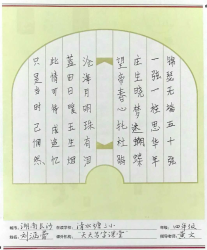 锦瑟无端五十弦
一弦一柱思华年
庄生晓梦迷蝴蝶
望帝春心托杜鹃
沧海月明珠有泪
蓝田日暖玉生烟
此情可待成追忆
只是当时已惘然
湖南长沙
年级 四年级
刘涵睿
天天写字课堂